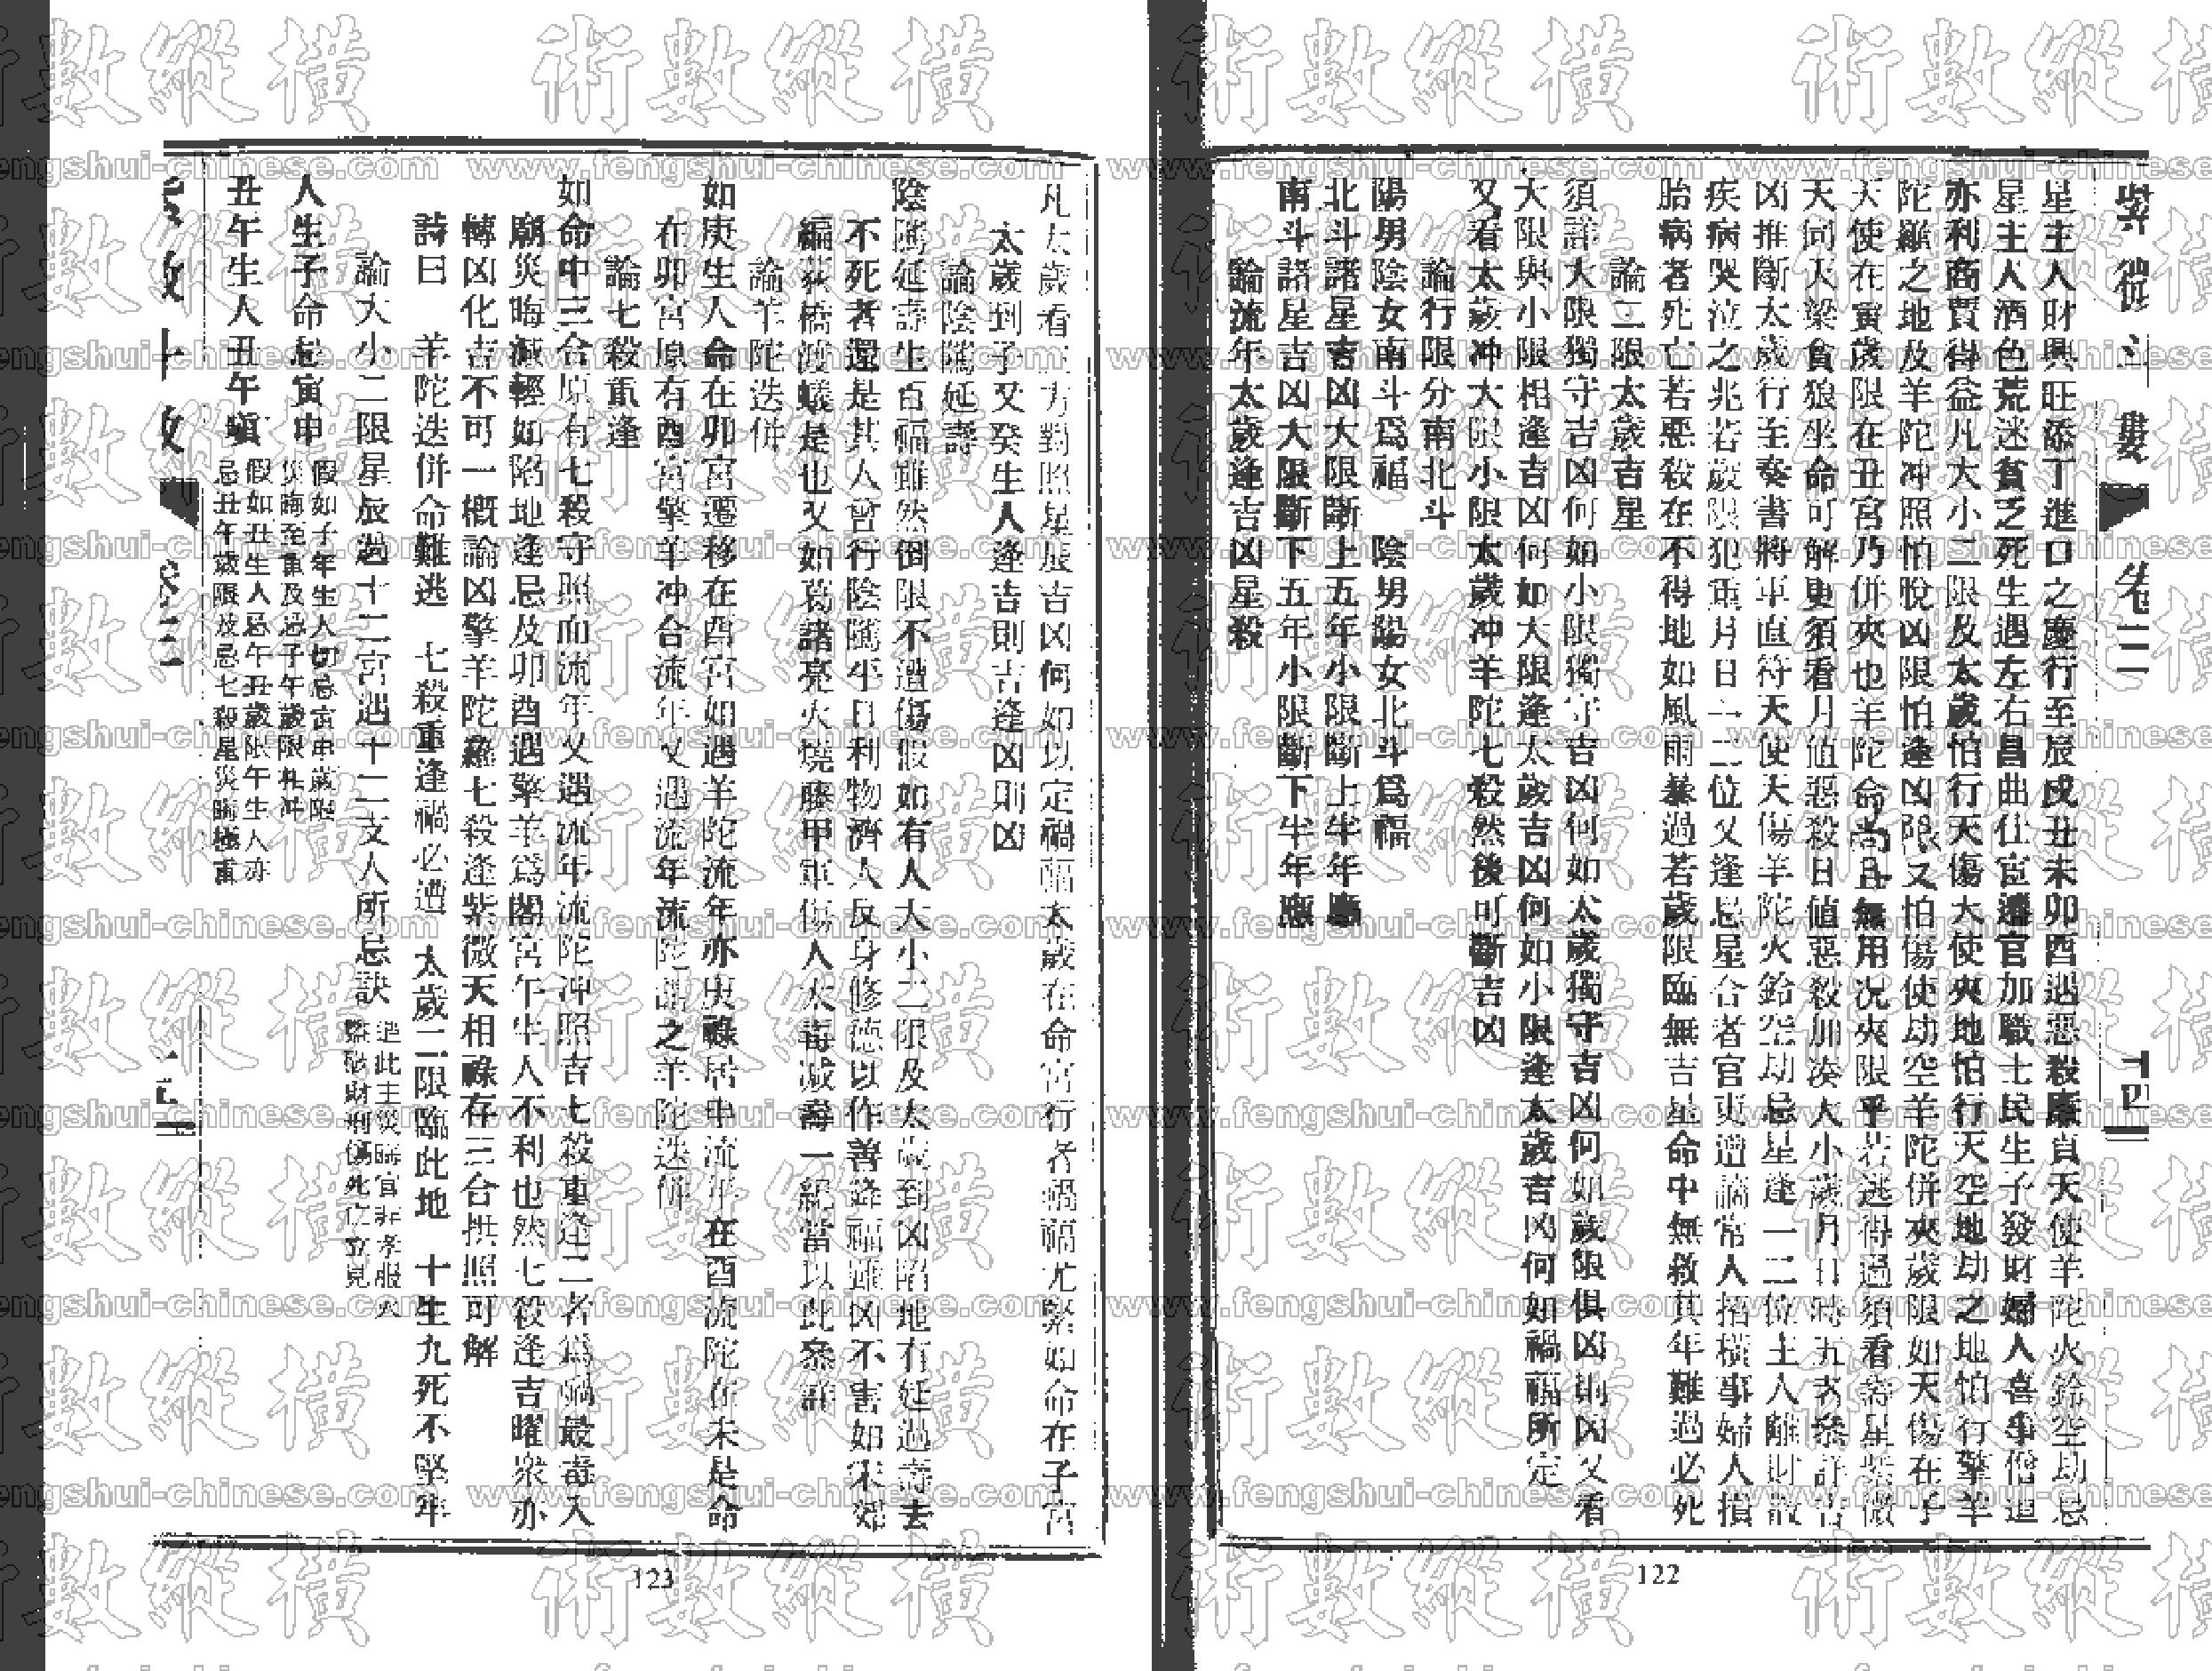 紫微斗數
卷三
十四
星主人財興旺添丁進口之慶行至辰戌丑未卯酉遇惡殺廉貞天使羊陀火鈴空劫忌
星主人酒色荒迷貧乏死生遇左右昌曲仕宦遷官加職士民生子發財婦人喜事僧道
亦利商賈得益凡大小二限及太歲怕行天傷天使夾地怕行天空地劫之地怕行擎羊
陀羅之地及羊陀冲照怕脫凶限怕逢凶限又怕傷使劫空羊陀併夾歲限如天傷在子
天使在寅歲限在丑宮乃併夾也羊陀命尚且無用况夾限乎若逃得過須看壽星紫微
天同天梁貪狼坐命可解更須看月值惡殺日值惡殺加湊大小歲月日時五者叅詳吉
凶推斷太歲行至奏書將軍直符天使天傷羊陀火鈴空劫忌星逢一二位主人離財散
疾病哭泣之兆若歲限犯重月日一二位又逢忌星合者官吏遭謫常人招橫事婦人損
胎病者死亡若惡殺在不得地如風雨暴過若歲限臨無吉星命中無救其年難過必死
論二限太歲吉星
須詳大限獨守吉凶何如小限獨守吉凶何如太歲獨守吉凶何如歲限俱凶則凶又看
大限與小限相逢吉凶何如大限逢太歲吉凶何如小限逢太歲吉凶何如禍福所定
又看太歲冲大限小限太歲冲羊陀七殺然後可斷吉凶
論行限分南北斗
陽男陰女南斗爲福　陰男陽女北斗爲福
北斗諸星吉凶大限斷上五年小限斷上半年應
南斗諸星吉凶大限斷下五年小限斷下半年應
論流年太歲逢吉凶星殺
122
凡太歲看三方對照星辰吉凶何如以定禍福太歲在命宮行者禍福尤緊如命在子宮
太歲到子又癸生人逢吉則吉逢凶則凶
論陰隲延壽
陰隲延壽生百福雖然倒限不遭傷假如有人大小二限及太歲到凶陷地有延過壽去
不死者還是其人曾行陰隲平日利物濟人反身修德以作善降福雖凶不害如宋郊
編荻橋渡蟻是也又如葛諸亮火燒藤甲軍傷人太毒減壽一紀當以此叅詳
論羊陀迭併
如庚生人命在卯宮遷移在酉宮如遇羊陀流年亦庚祿居申流羊在酉流陀在未是命
在卯宮原有酉宮擎羊冲合流年又遇流年流陀謂之羊陀迭併
論七殺重逢
如命中三合原有七殺守照而流年又遇流年流陀冲照吉七殺重逢二者爲禍最毒入
廟災晦減輕如陷地逢忌及卯酉遇擎羊爲陷宮午生人不利也然七殺逢吉曜衆亦
轉凶化吉不可一概論凶擎羊陀羅七殺逢紫微天相祿存三合拱照可解
詩曰　羊陀迭併命難逃　七殺重逢禍必遭　太歲二限臨此地　十生九死不堅牢
論大小二限星辰過十二宮遇十二支人所忌訣
遇此主災晦官非孝服火
盜破財刑傷死亡立見
人生子命忌寅申
假如子年生人切忌寅申歲限
災晦至重及忌子午歲限相冲
丑午生人丑午嗔
假如丑生人忌午丑歲限午生人亦
忌丑午歲限及忌七殺星災晦極重
卷三
123